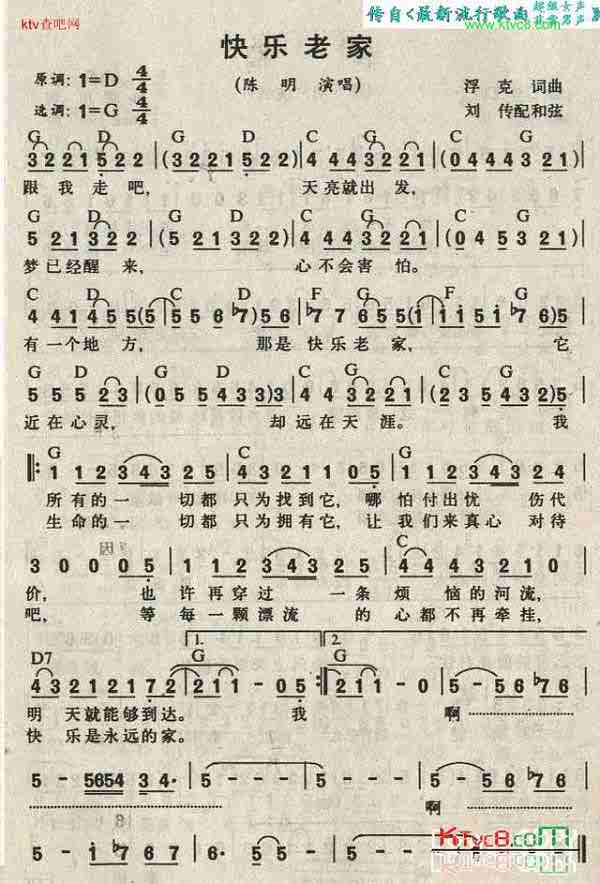 ktv查吧网
传自<最新流行歌曲 超级女声
www.ktvc8.com
快乐老家
原调:1=D 4/4 (陈 明 演唱) 浮 克 词曲
选调:1=G 4/4 刘 传配和弦
G D G D C G C G
3 2 2 1 5 2 2 | (3 2 2 1 5 2 2) | 4 4 4 3 2 2 1 | (0 4 4 4 3 2 2 1) |
跟 我 走 吧, 天亮就出 发,
G D G D C G C G
5 2 1 3 2 2 | (5 2 2 1 3 2 2) | 4 4 4 3 2 2 1 | (0 4 5 3 2 1) |
梦已经醒 来, 心 不会害 怕。
C D C D F G F G
4 4 1 4 5 5(5 | 5 5 6 5 6 ♭7) | ♭7 7 6 5 5(i | i i 5 i ♭7 6)5 |
有 一个 地 方, 那是 快乐老 家, 它
C D C D C D C D
5 5 5 2 3 | (0 5 5 4 3 3)3 | 2 2 4 3 2 | (0 5 5 4 3 2)5 |
近在心灵, 却 远在天 涯。 我
G C G
1 1 2 3 4 3 2 5 | 2 3 2 1 1 0 5 | 1 1 2 3 4 3 2 4 |
所 有的 一 切都 只为找到它, 哪 怕付出忧 伤代
生 命的 一 切都 只为拥有它, 让 我们来真心 对待
C
3 0 0 0 0 5 | 1 1 2 3 4 3 2 5 | 2 3 4 3 2 1 0 |
价, 也 许再穿过 一条 烦 恼的河流,
吧, 等 每一颗漂流 的 心都不再牵挂,
1. 2.
D7 G G
4 3 2 1 2 1 7 2 | 2 1 1 - 0 5 :| 2 1 1 - 0 | 5 - 5 6 ♭7 6 |
明 天就能够到达。 我 啊
快 乐是永远的家。
5 - 5654 3 4· | 5 - - - | 5 - - - | 5 - 5 6 ♭7 6 |
啊
KTvc8.com
5 - i ♭7 6 7 | 6· 5 - | 5 - - - | 5 - - - |